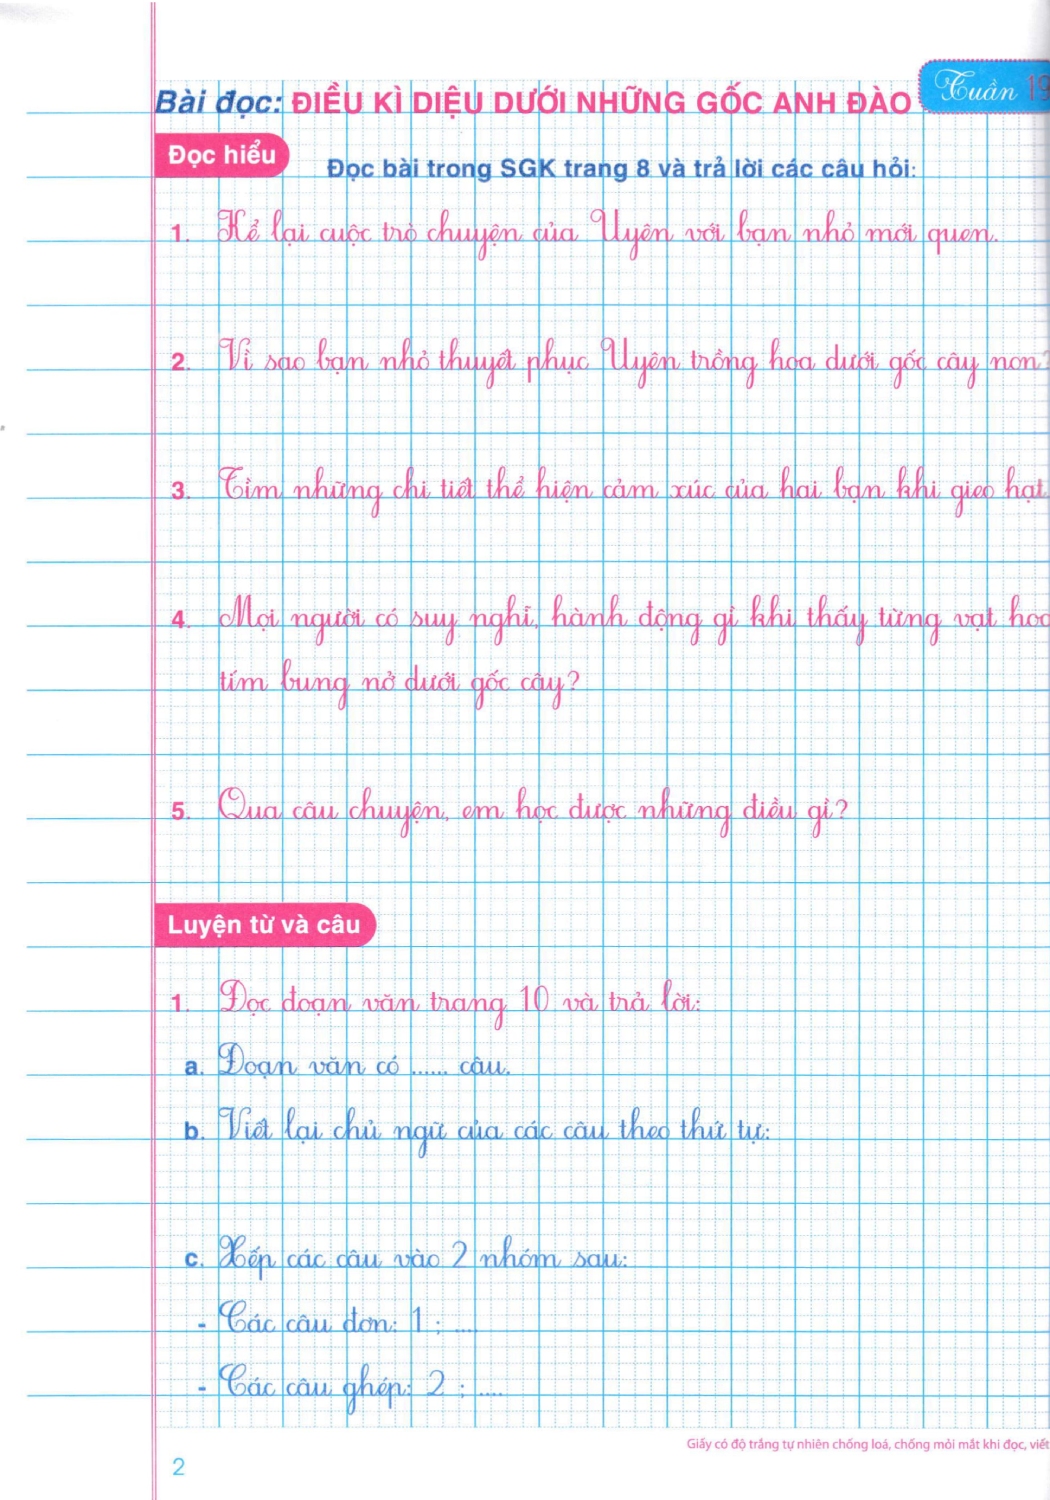 Tuần 19
Bài đọc: ĐIỀU KÌ DIỆU DƯỚI NHỮNG GỐC ANH ĐÀO
Đọc hiểu
Đọc bài trong SGK trang 8 và trả lời các câu hỏi:
1. Kể lại cuộc trò chuyện của Uyên với bạn nhỏ mới quen.
2. Vì sao bạn nhỏ thuyết phục Uyên trồng hoa dưới gốc cây non?
3. Tìm những chi tiết thể hiện cảm xúc của hai bạn khi gieo hạt.
4. Mọi người có suy nghĩ, hành động gì khi thấy từng vạt hoa
tím bung nở dưới gốc cây?
5. Qua câu chuyện, em học được những điều gì?
Luyện từ và câu
1. Đọc đoạn văn trang 10 và trả lời:
a. Đoạn văn có ...... câu.
b. Viết lại chủ ngữ của các câu theo thứ tự:
c. Xếp các câu vào 2 nhóm sau:
- Các câu đơn: 1 ; ....
- Các câu ghép: 2 ; ....
Giấy có độ trắng tự nhiên chống loá, chống mỏi mắt khi đọc, viết
2